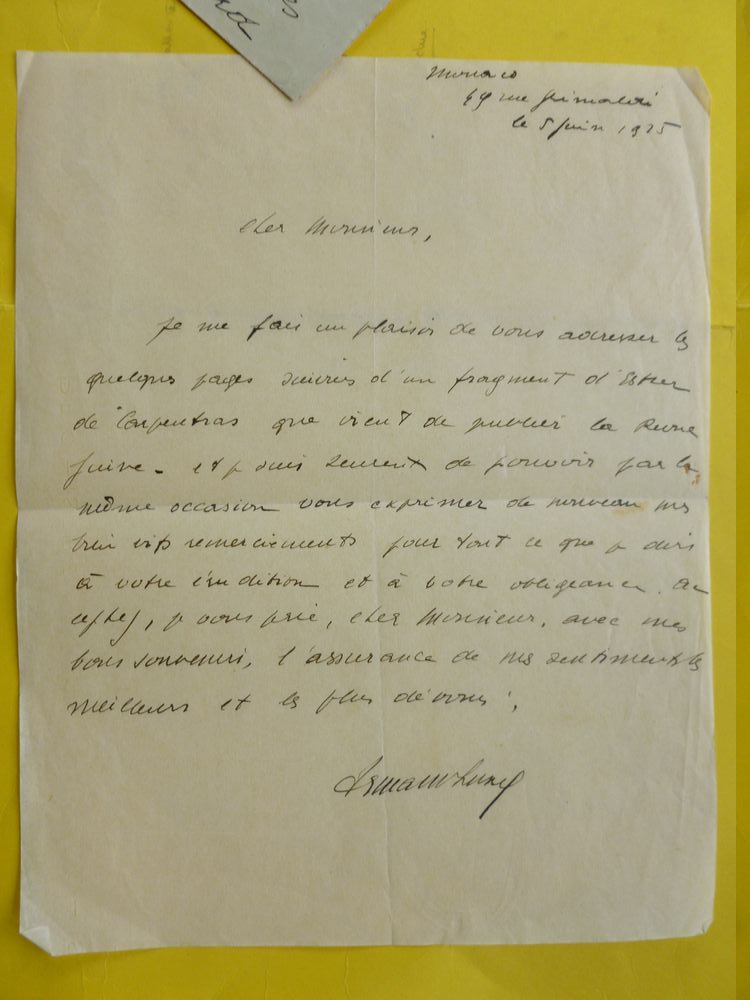 Monaco
49 rue Grimaldi
le 5 juin 1925
Cher Monsieur,
Je me fais un plaisir de vous adresser les
quelques pages suivies d'un fragment d'Esther
de Carpentras que vient de publier la Revue
Juive - et je suis heureux de pouvoir par la
même occasion vous exprimer de nouveau mes
bien vifs remerciements pour tout ce que je dois
à votre érudition et à votre obligeance. Ac
ceptez, je vous prie, cher Monsieur, avec mes
bons souvenirs, l'assurance de mes sentiments les
meilleurs et les plus dévoués.
Armand Lunel